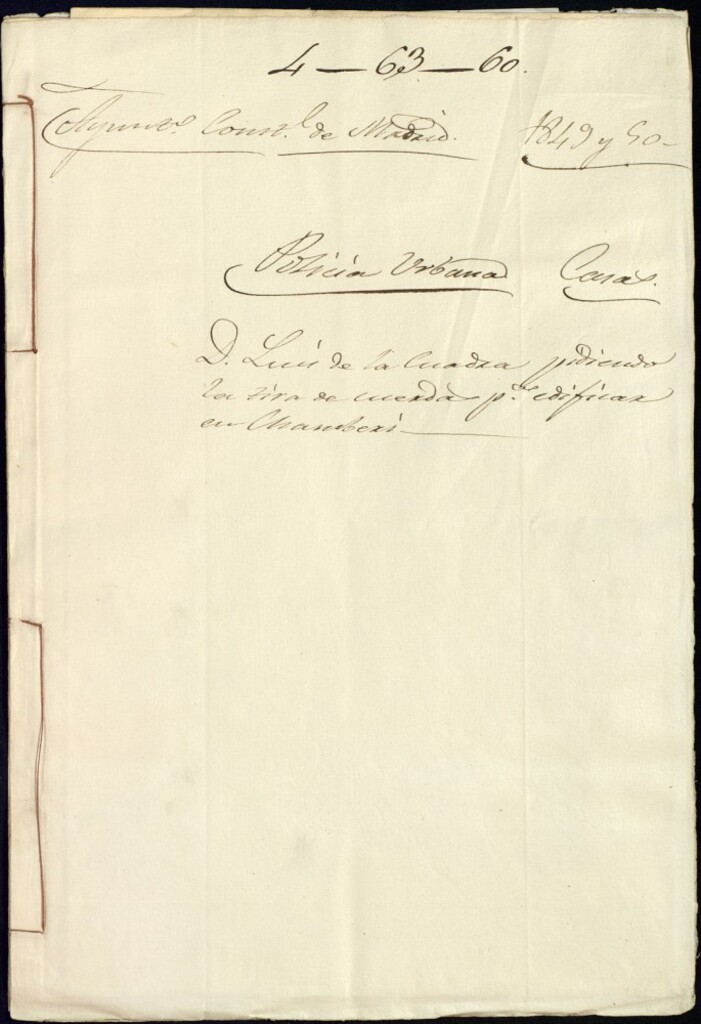 4 — 63 — 60.
Ayunt.º Const.l de Madrid. 1849 y 50 -
Policia Urbana Casas.
D. Luis de la Cuadra pidiendo
la tira de cuerda p.ª edificar
en Chamberi —